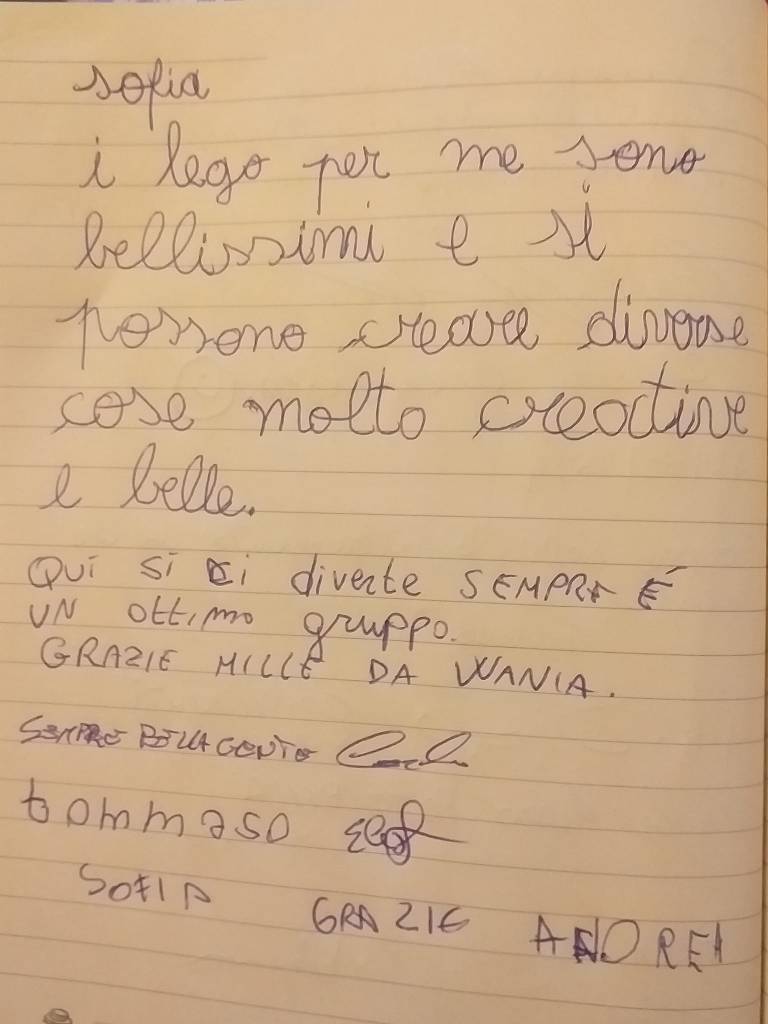 sofia
i lego per me sono
bellissimi e si
possono creare diverse
cose molto creative
e belle.
QUI SI ci diverte SEMPRE È
UN OTTIMO gruppo.
GRAZIE MILLE DA VANIA.
SEMPRE BELLA GENTE
tommaso
SOFIA GRAZIE ANDREA